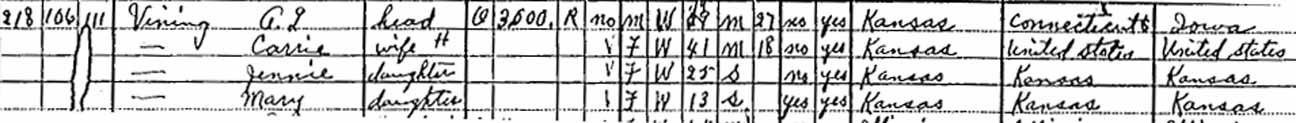 218 106 111 Vining A. L head O 3,500. R no m W m 27 no yes Kansas Connecticut Iowa
— Carrie wife H V F W 41 m 18 no yes Kansas United States United States
— Jennie daughter V F W 25 S no yes Kansas Kansas Kansas
— Mary daughter V F W 13 S yes yes Kansas Kansas Kansas